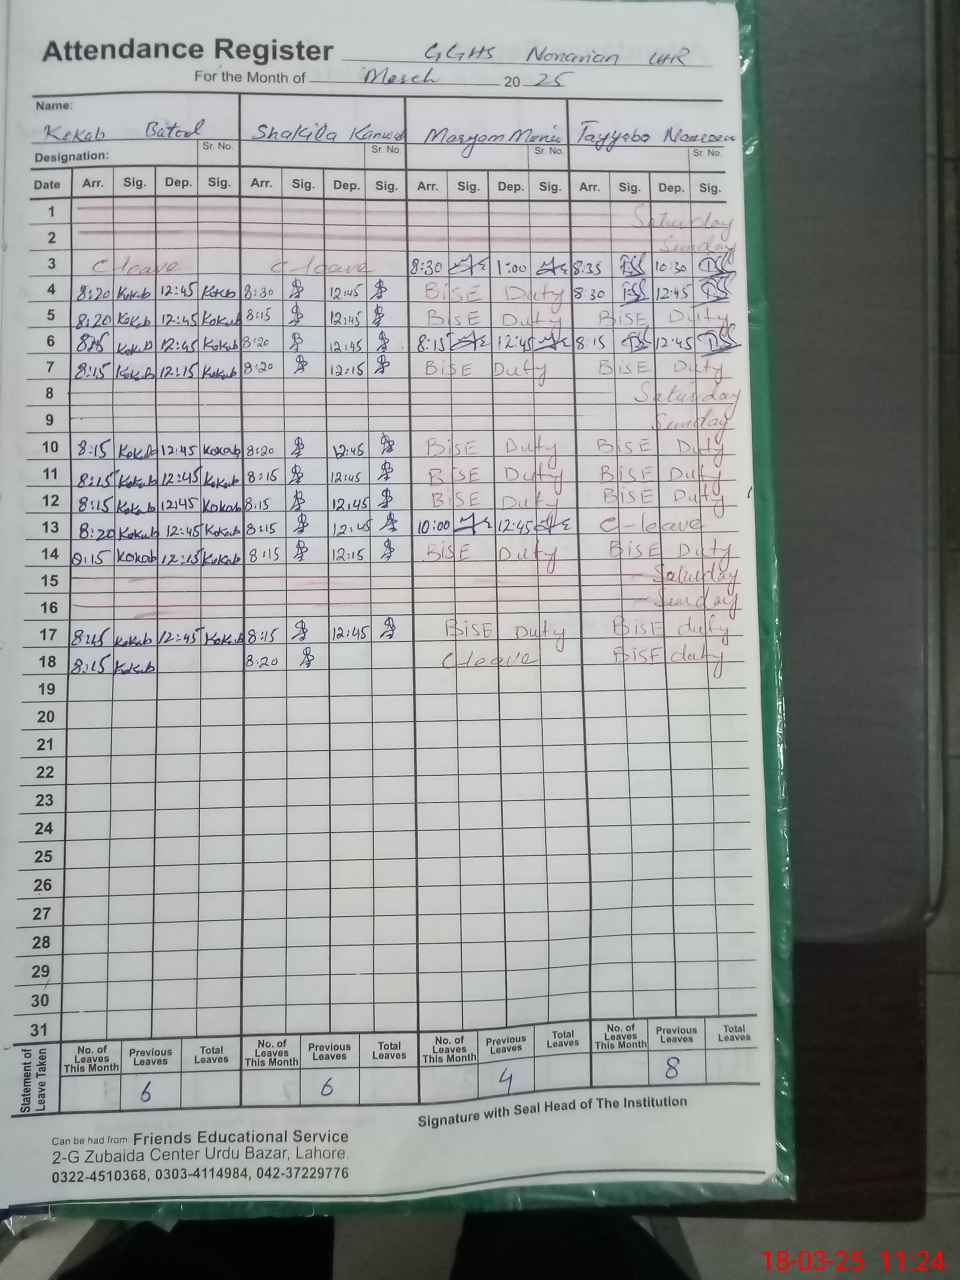 Attendance Register GGHS Nonarian LHR
For the Month of March 2025
Name:
Kokab Batool Shakila Kanwal Maryam Tayyaba
Designation: Sr. No. Sr. No. Sr. No. Sr. No.
Date Arr. Sig. Dep. Sig. Arr. Sig. Dep. Sig. Arr. Sig. Dep. Sig. Arr. Sig. Dep. Sig.
1 Saturday
2 Sunday
3 C leave C-leave 8:30 1:00 8:35 10:30
4 8:20 Kokab 12:45 Kokab 8:30 12:45 BISE Duty 8:30 12:45
5 8:20 Kokab 12:45 Kokab 8:15 12:45 BISE Duty BISE Duty
6 8:15 Kokab 12:45 Kokab 8:20 12:45 8:15 12:45 8:15 12:45
7 8:15 Kokab 12:15 Kokab 8:20 12:15 BISE Duty BISE Duty
8 Saturday
9 Sunday
10 8:15 Kokab 12:45 Kokab 8:20 12:45 BISE Duty BISE Duty
11 8:15 Kokab 12:45 Kokab 8:15 12:45 BISE Duty BISE Duty
12 8:15 Kokab 12:45 Kokab 8:15 12:45 BISE Duty BISE Duty
13 8:20 Kokab 12:45 Kokab 8:15 12:45 10:00 12:45 C-leave
14 8:15 Kokab 12:15 Kokab 8:15 12:15 BISE Duty BISE Duty
15 Saturday
16 Sunday
17 8:15 Kokab 12:45 Kokab 8:15 12:45 BISE Duty BISE duty
18 8:15 Kokab 8:20 C leave BISE duty
19
20
21
22
23
24
25
26
27
28
29
30
31
Statement of Leave Taken
No. of Leaves This Month Previous Leaves Total Leaves No. of Leaves This Month Previous Leaves Total Leaves No. of Leaves This Month Previous Leaves Total Leaves No. of Leaves This Month Previous Leaves Total Leaves
6 6 4 8
Signature with Seal Head of The Institution
Can be had from Friends Educational Service
2-G Zubaida Center Urdu Bazar, Lahore.
0322-4510368, 0303-4114984, 042-37229776
18-03-25 11:24